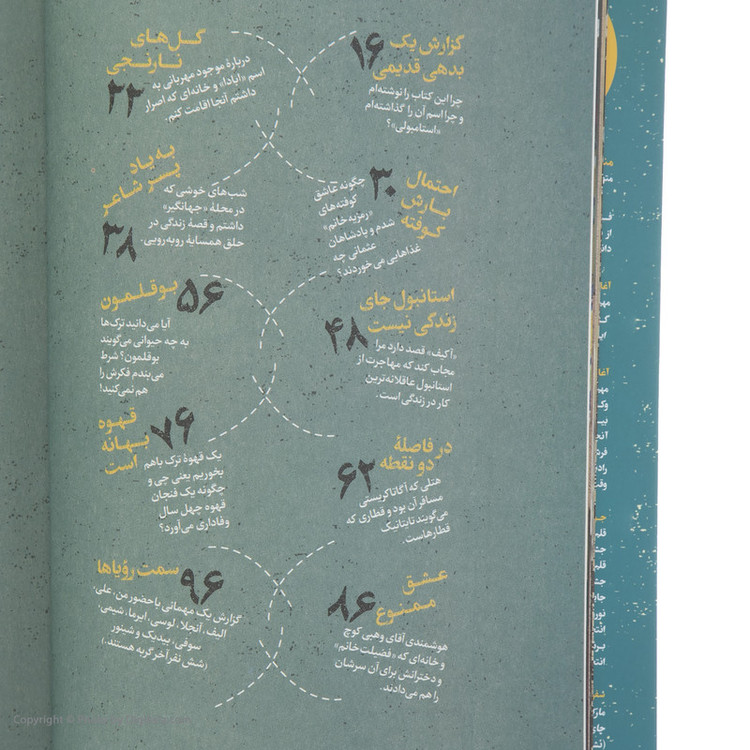 گزارش یک
بدهی قدیمی
۱۶
چرا این کتاب را نوشته‌ام
و چرا اسم آن را گذاشته‌ام
«استامبولی»؟
گل‌های
نارنجی
۲۲
دربارهٔ موجود مهربانی به
اسم «آیادا» و خانه‌ای که اصرار
داشتم آنجا اقامت کنم.
احتمال
بارش
کوفته
۳۰
چگونه عاشق
کوفته‌های
«رمزیه خانم»
شدم و پادشاهان
عثمانی چه
غذاهایی می‌خوردند؟
به یاد
پسر شاعر
۳۸
شب‌های خوشی که
در محلهٔ «جهانگیر»
داشتم و قصهٔ زندگی در
حلق همسایهٔ روبه‌رویی.
استانبول جای
زندگی نیست
۴۸
«آکیف» قصد دارد مرا
مجاب کند که مهاجرت از
استانبول عاقلانه‌ترین
کار در زندگی است.
بوقلمون
۵۶
آیا می‌دانید ترک‌ها
به چه حیوانی می‌گویند
بوقلمون؟ شرط
می‌بندم فکرش را
هم نمی‌کنید!
در فاصلهٔ
دو نقطه
۶۲
هتلی که آگاتا کریستی
مسافر آن بود و قطاری که
می‌گویند تایتانیک
قطارهاست.
قهوه
بهانه
است
۷۶
یک قهوهٔ ترک باهم
بخوریم یعنی چی و
چگونه یک فنجان
قهوه چهل سال
وفاداری می‌آورد؟
عشق
ممنوع
۸۶
هوشمندی آقای وهبی کوچ
و خانه‌ای که «فضیلت خانم»
و دخترانش برای آن سرشان
را هم می‌دادند.
سمت رؤیاها
۹۶
گزارش یک مهمانی با حضور من، علی،
الیف، آنجلا، لوسی، ایرما، شیمی،
سوفی، بیدیک و شینور
(شش نفر آخر گربه هستند.)